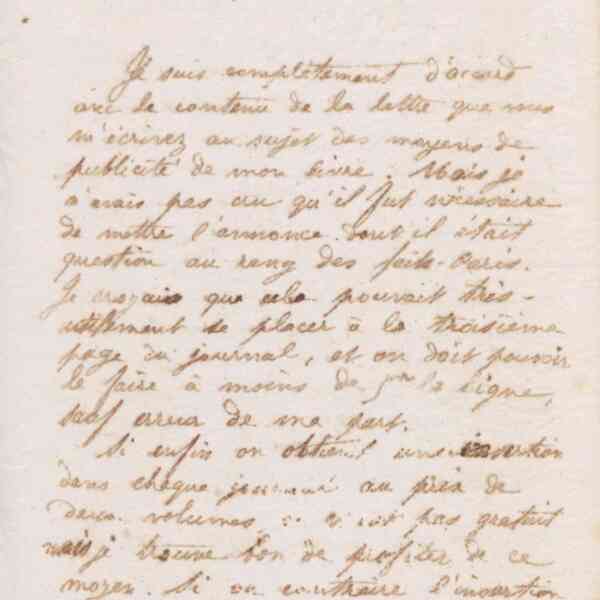 Je suis complètement d'accord
avec le contenu de la lettre que vous
m'écrivez au sujet des moyens de
publicité de mon livre. Mais je
n'avais pas cru qu'il fut nécessaire
de mettre l'annonce dont il était
question au rang des faits-Paris.
Je croyais que cela pouvait très-
utilement se placer à la troisième
page du journal, et on doit pouvoir
le faire à moins de 5 fr la ligne,
sauf erreur de ma part.
Si enfin on obtient une insertion
dans chaque journal au prix de
deux volumes, pas gratuit
mais je trouve bon de profiter de ce
moyen. Si au contraire l'insertion